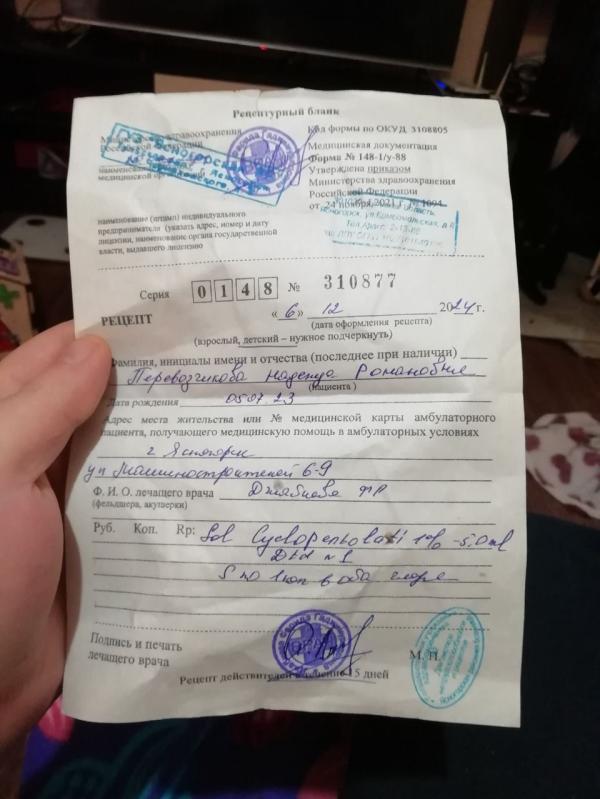 Рецептурный бланк
здравоохранения
Российской Федерации
медицинской организации
наименование (штамп) индивидуального
предпринимателя (указать адрес, номер и дату
лицензии, наименование органа государственной
власти, выдавшего лицензию
Код формы по ОКУД 3108805
Медицинская документация
Форма № 148-1/у-88
Утверждена приказом
Министерства здравоохранения
Российской Федерации
от 24 ноября 2021 г. № 1094
Серия 0 1 4 8 № 310877
РЕЦЕПТ «6» 12 2024г.
(дата оформления рецепта)
(взрослый, детский – нужное подчеркнуть)
Фамилия, инициалы имени и отчества (последнее при наличии)
Перевозчикова Надежда Романовне
пациента )
Дата рождения 0507.23
Адрес места жительства или № медицинской карты амбулаторного
пациента, получающего медицинскую помощь в амбулаторных условиях
г. Ясногорск
ул Машиностроителей 6-9
Ф. И.О. лечащего врача
(фельдшера, акушерки)
Руб. Коп. Rp: Sol 1% -5.0 ml
D.t.d N1
S по 1кап в оба глаза
Подпись и печать
лечащего врача
М. П.
Рецепт действителен в течение 15 дней